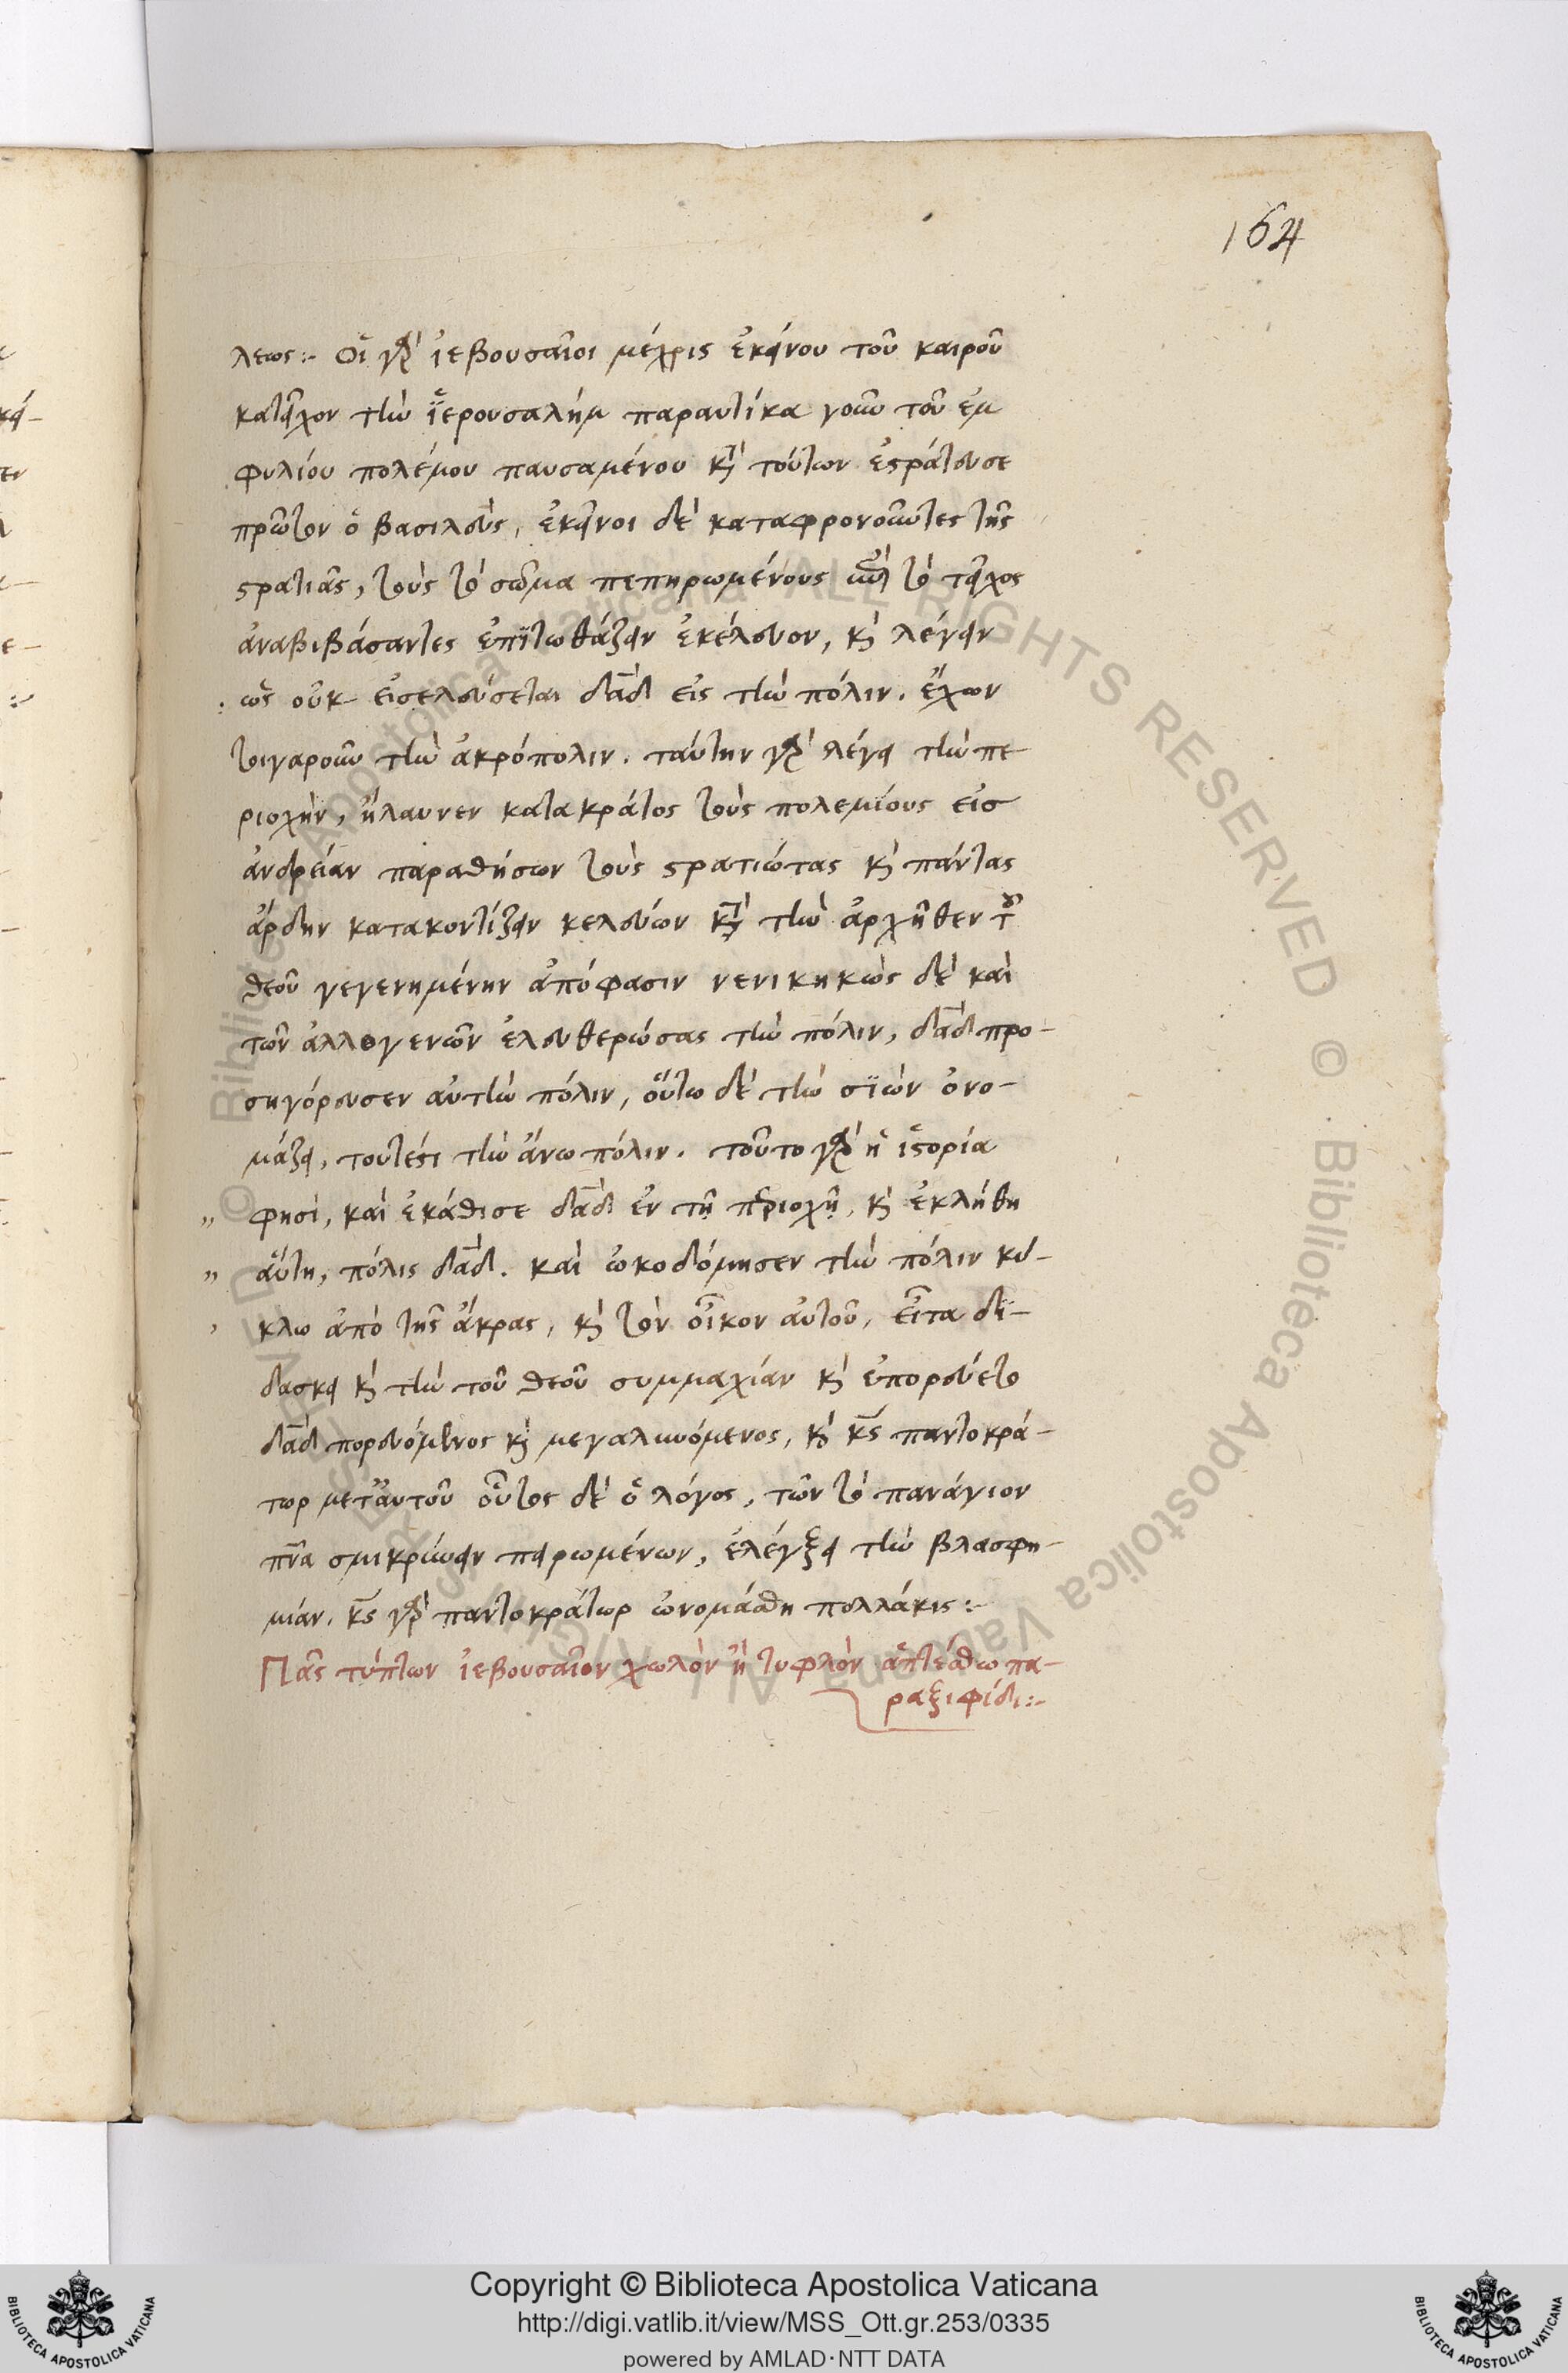 164
λεως:- Οἱ γὰρ ἰεβουσαῖοι μέχρις ἐκείνου τοῦ καιροῦ
κατεῖχον τὴν ἱερουσαλήμ παραυτίκα γοῦν τοῦ ἐμ
φυλίου πολέμου παυσαμένου κατὰ τούτων ἐστράτευσε
πρῶτον ὁ βασιλεὺς, ἐκεῖνοι δὲ καταφρονοῦντες τῆς
στρατιᾶς, τοὺς τὸ σῶμα πεπηρωμένους τὸ τεῖχος
ἀναβιβάσαντες ἐπιτωθάζειν ἐκέλευον, καὶ λέγειν
ὡς οὐκ εἰσελεύσεται δᾱδ εἰς τὴν πόλιν. ἔχων
τοιγαροῦν τὴν ἀκρόπολιν. ταύτην γὰρ λέγει τὴν πε
ριοχὴν, ἤλαυνεν κατακράτος τοὺς πολεμίους εἰσ
ἀνδρείαν παραθήσων τοὺς στρατιώτας καὶ πάντας
ἄρδην κατακοντίζειν κελεύων κατὰ τὴν ἀρχῆθεν τοῦ
θεοῦ γεγενημένην ἀπόφασιν νενικηκὼς δὲ καὶ
τῶν ἀλλογενῶν ἐλευθερώσας τὴν πόλιν, δᾱδ προ-
σηγόρευσεν αὐτὴν πόλιν, οὕτω δὲ τὴν σϊὼν ὀνο-
μάζει, τουτέστι τὴν ἄνω πόλιν. τοῦτο γὰρ ἡ ἱστορία
" φησὶ, καὶ ἐκάθισε δᾱδ ἐν τῇ περιοχῇ, καὶ ἐκλήθη
" αὕτη, πόλις δᾱδ. καὶ ὠκοδόμησεν τὴν πόλιν κύ-
, κλω ἀπὸ τῆς ἄκρας, καὶ τὸν οἶκον αὐτοῦ, εἶτα δι-
δασκει καὶ τὴν τοῦ θεοῦ συμμαχίαν καὶ ἐπορεύετο
δᾱδ πορευόμενος καὶ μεγαλυνόμενος, καὶ κς̄ παντοκρά-
τωρ μετ' αυτοῦ οὗτος δὲ ὁ λόγος, τῶν τὸ πανάγιον
πν̄α σμικρύνειν πειρωμένων, ἐλέγξει τὴν βλασφη-
μίαν. κς̄ γὰρ παντοκράτωρ ὠνομάσθη πολλάκις:-
Πᾶς τύπτων ἰεβουσαῖον χωλὸν ἢ τυφλὸν ἁπτέσθω πα-
ραξιφίδι:-
Copyright © Biblioteca Apostolica Vaticana
http://digi.vatlib.it/view/MSS_Ott.gr.253/0335
powered by AMLAD·NTT DATA